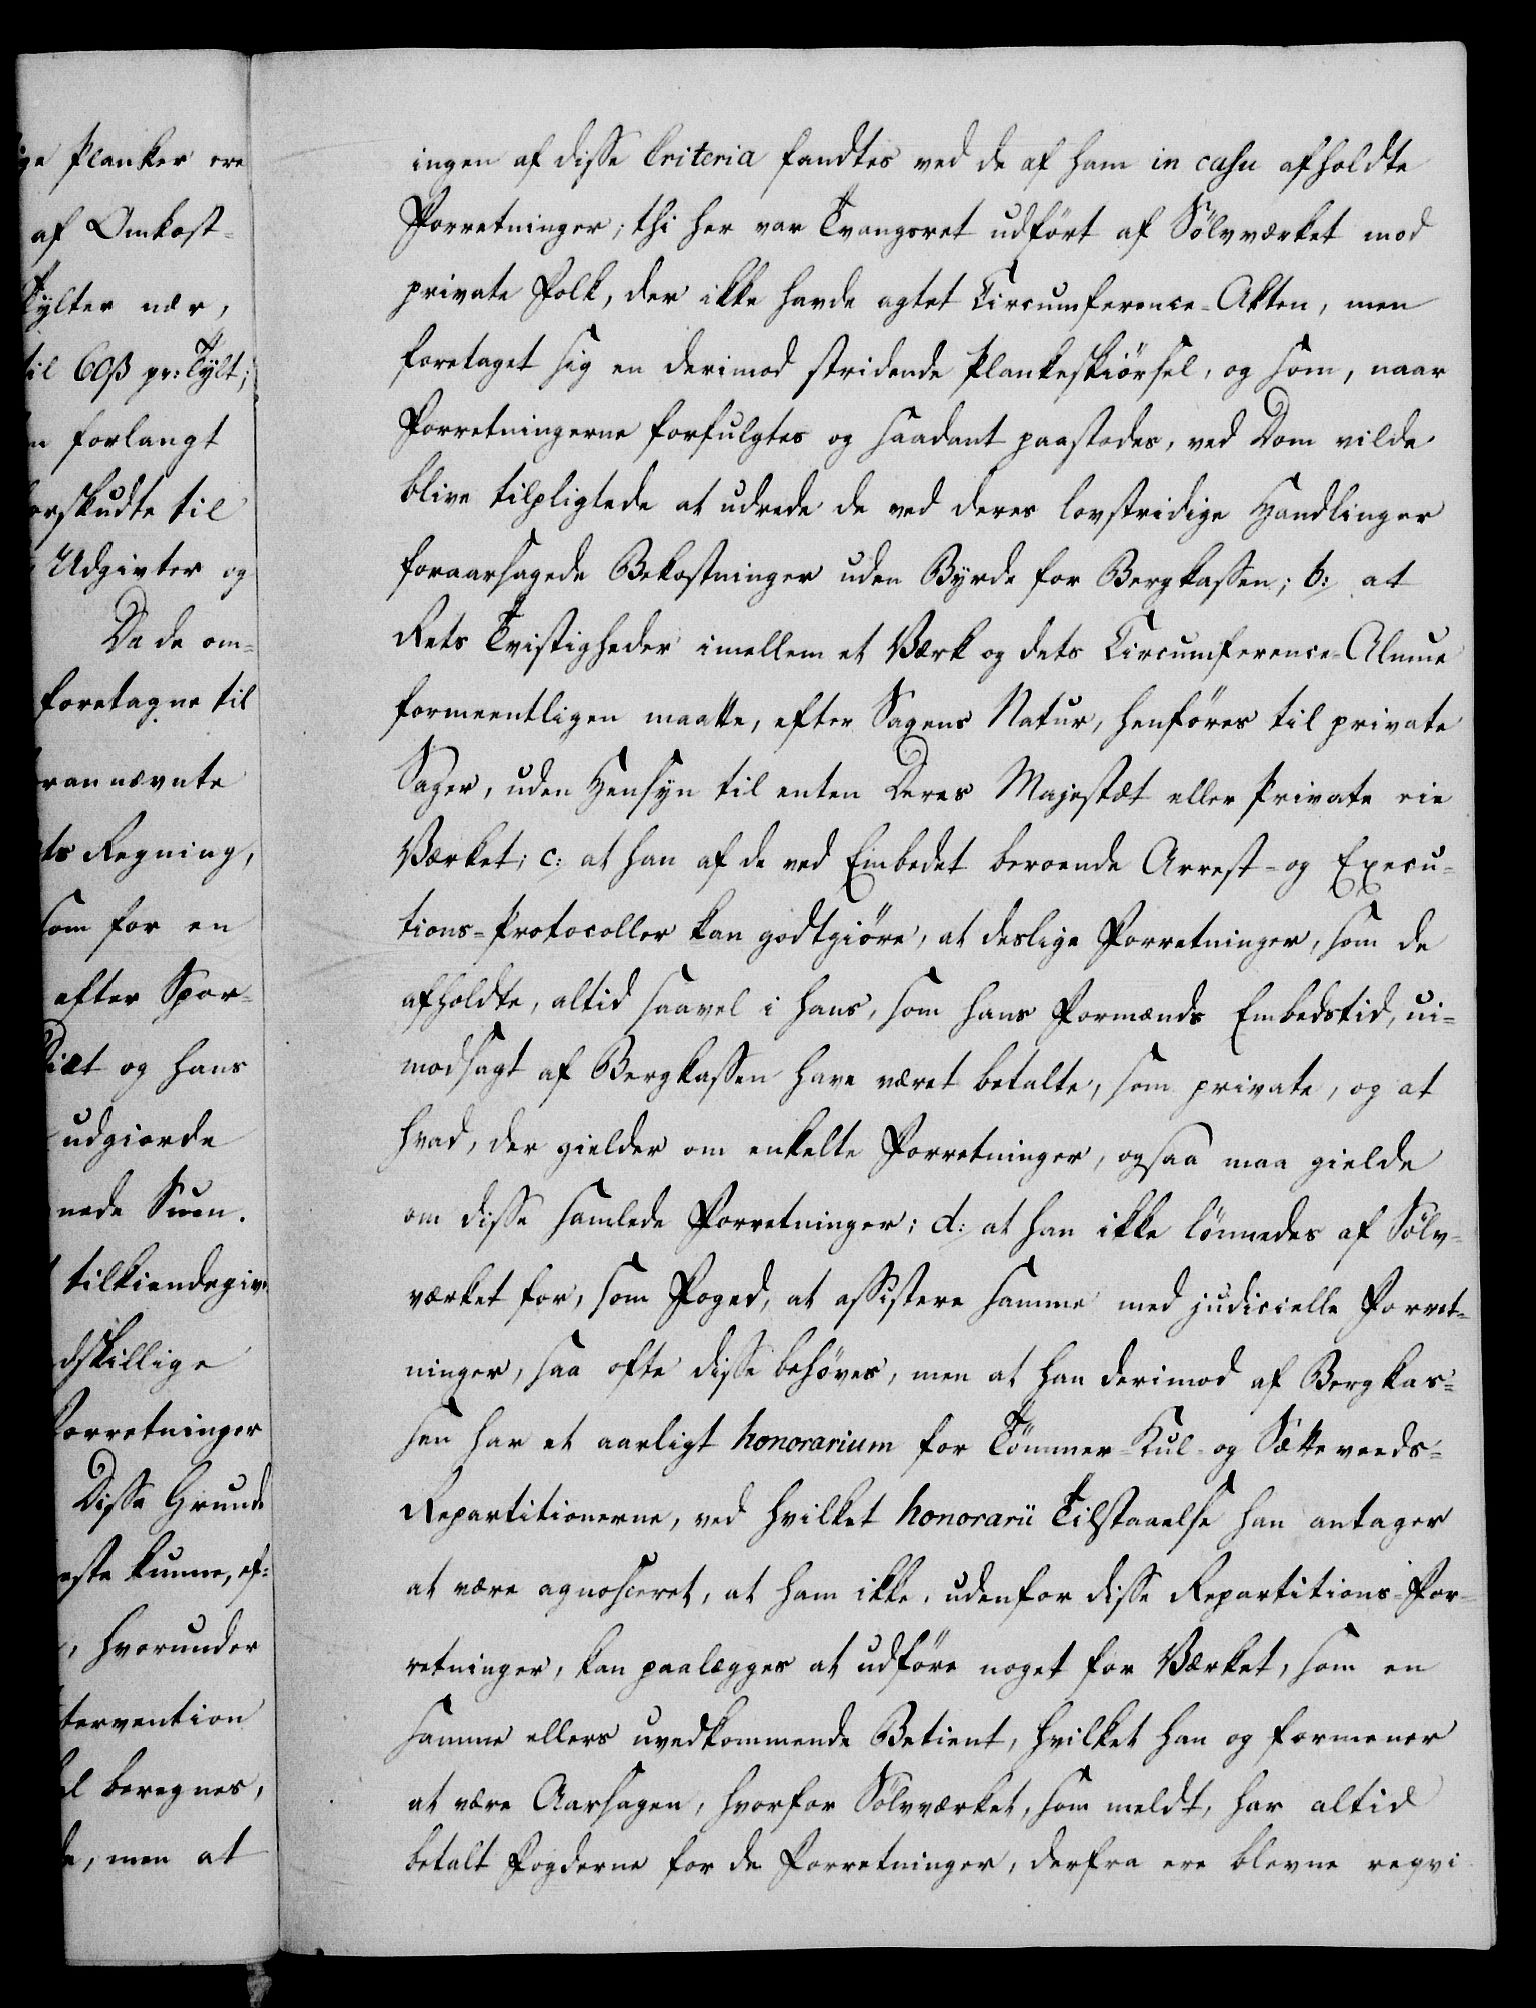 ge Planker ere
af Omkost-
Tylter nær,
til 60ß pr: Tylt;
n forlangt
orskudte til
Udgivter og
Da de om-
foretagne til
rannævnte
ts Regning,
som for en
efter Spor-
Diæt og hans
udgiorde
nede Sum.
tilkiendegiv-
dskillige
Forretninger
Disse Grunde
este kunne, ef-
, hvorunder
tervention
l beregnes,
de, men at
ingen af disse Criteria fandtes ved de af ham in casu afholdte
Forretninger; thi her var Tvangsret udført af Sölvværket mod
private Folk, der ikke havde agtet Circumference-Akten, men
foretaget sig en derimod stridende Plankeskiörsel, og som, naar
Forretningerne forfulgtes og saadant paastodes, ved Dom vilde
blive tilpligtede at udrede de ved deres lovstridige Handlinger
foraarsagede Bekostninger uden Byrde for Bergkassen; b: at
Rets Tvistigheder imellem et Værk og dets Circumference-Almue
formeentligen maatte, efter Sagens Natur, henföres til private
Sager, uden Hensyn til enten Deres Majestæt eller Private eie
Værket; c: at han af de ved Embedet beroende Arrest- og Execu-
tions-Protocoller kan godtgiöre, at deslige Forretninger, som de
afholdte, altid saavel i hans, som hans Formænds Embedstid, ui-
modsagt af Bergkassen have været betalte, som private, og at
hvad, der gielder om enkelte Forretninger, ogsaa maa gielde
om disse samlede Forretninger; d: at han ikke lönnedes af Sölv-
værket for, som Foged, at assistere samme med judicielle Forret-
ninger, saa ofte disse behöves, men at han derimod af Bergkas-
sen har et aarligt honorarium for Tömmer-Kul- og Sætteveeds-
Repartitionerne, ved hvilket honorarii Tilstaaelse han antager
at være agnosceret, at ham ikke, udenfor disse Repartitions-For-
retninger, kan paalægges at udföre noget for Værket, som en
samme ellers uvedkommende Betient, hvilket han og formener
at være Aarsagen, hvorfor Sölvværket, som meldt, har altid
betalt Fogderne for de Forretninger, derfra ere blevne reqvi-